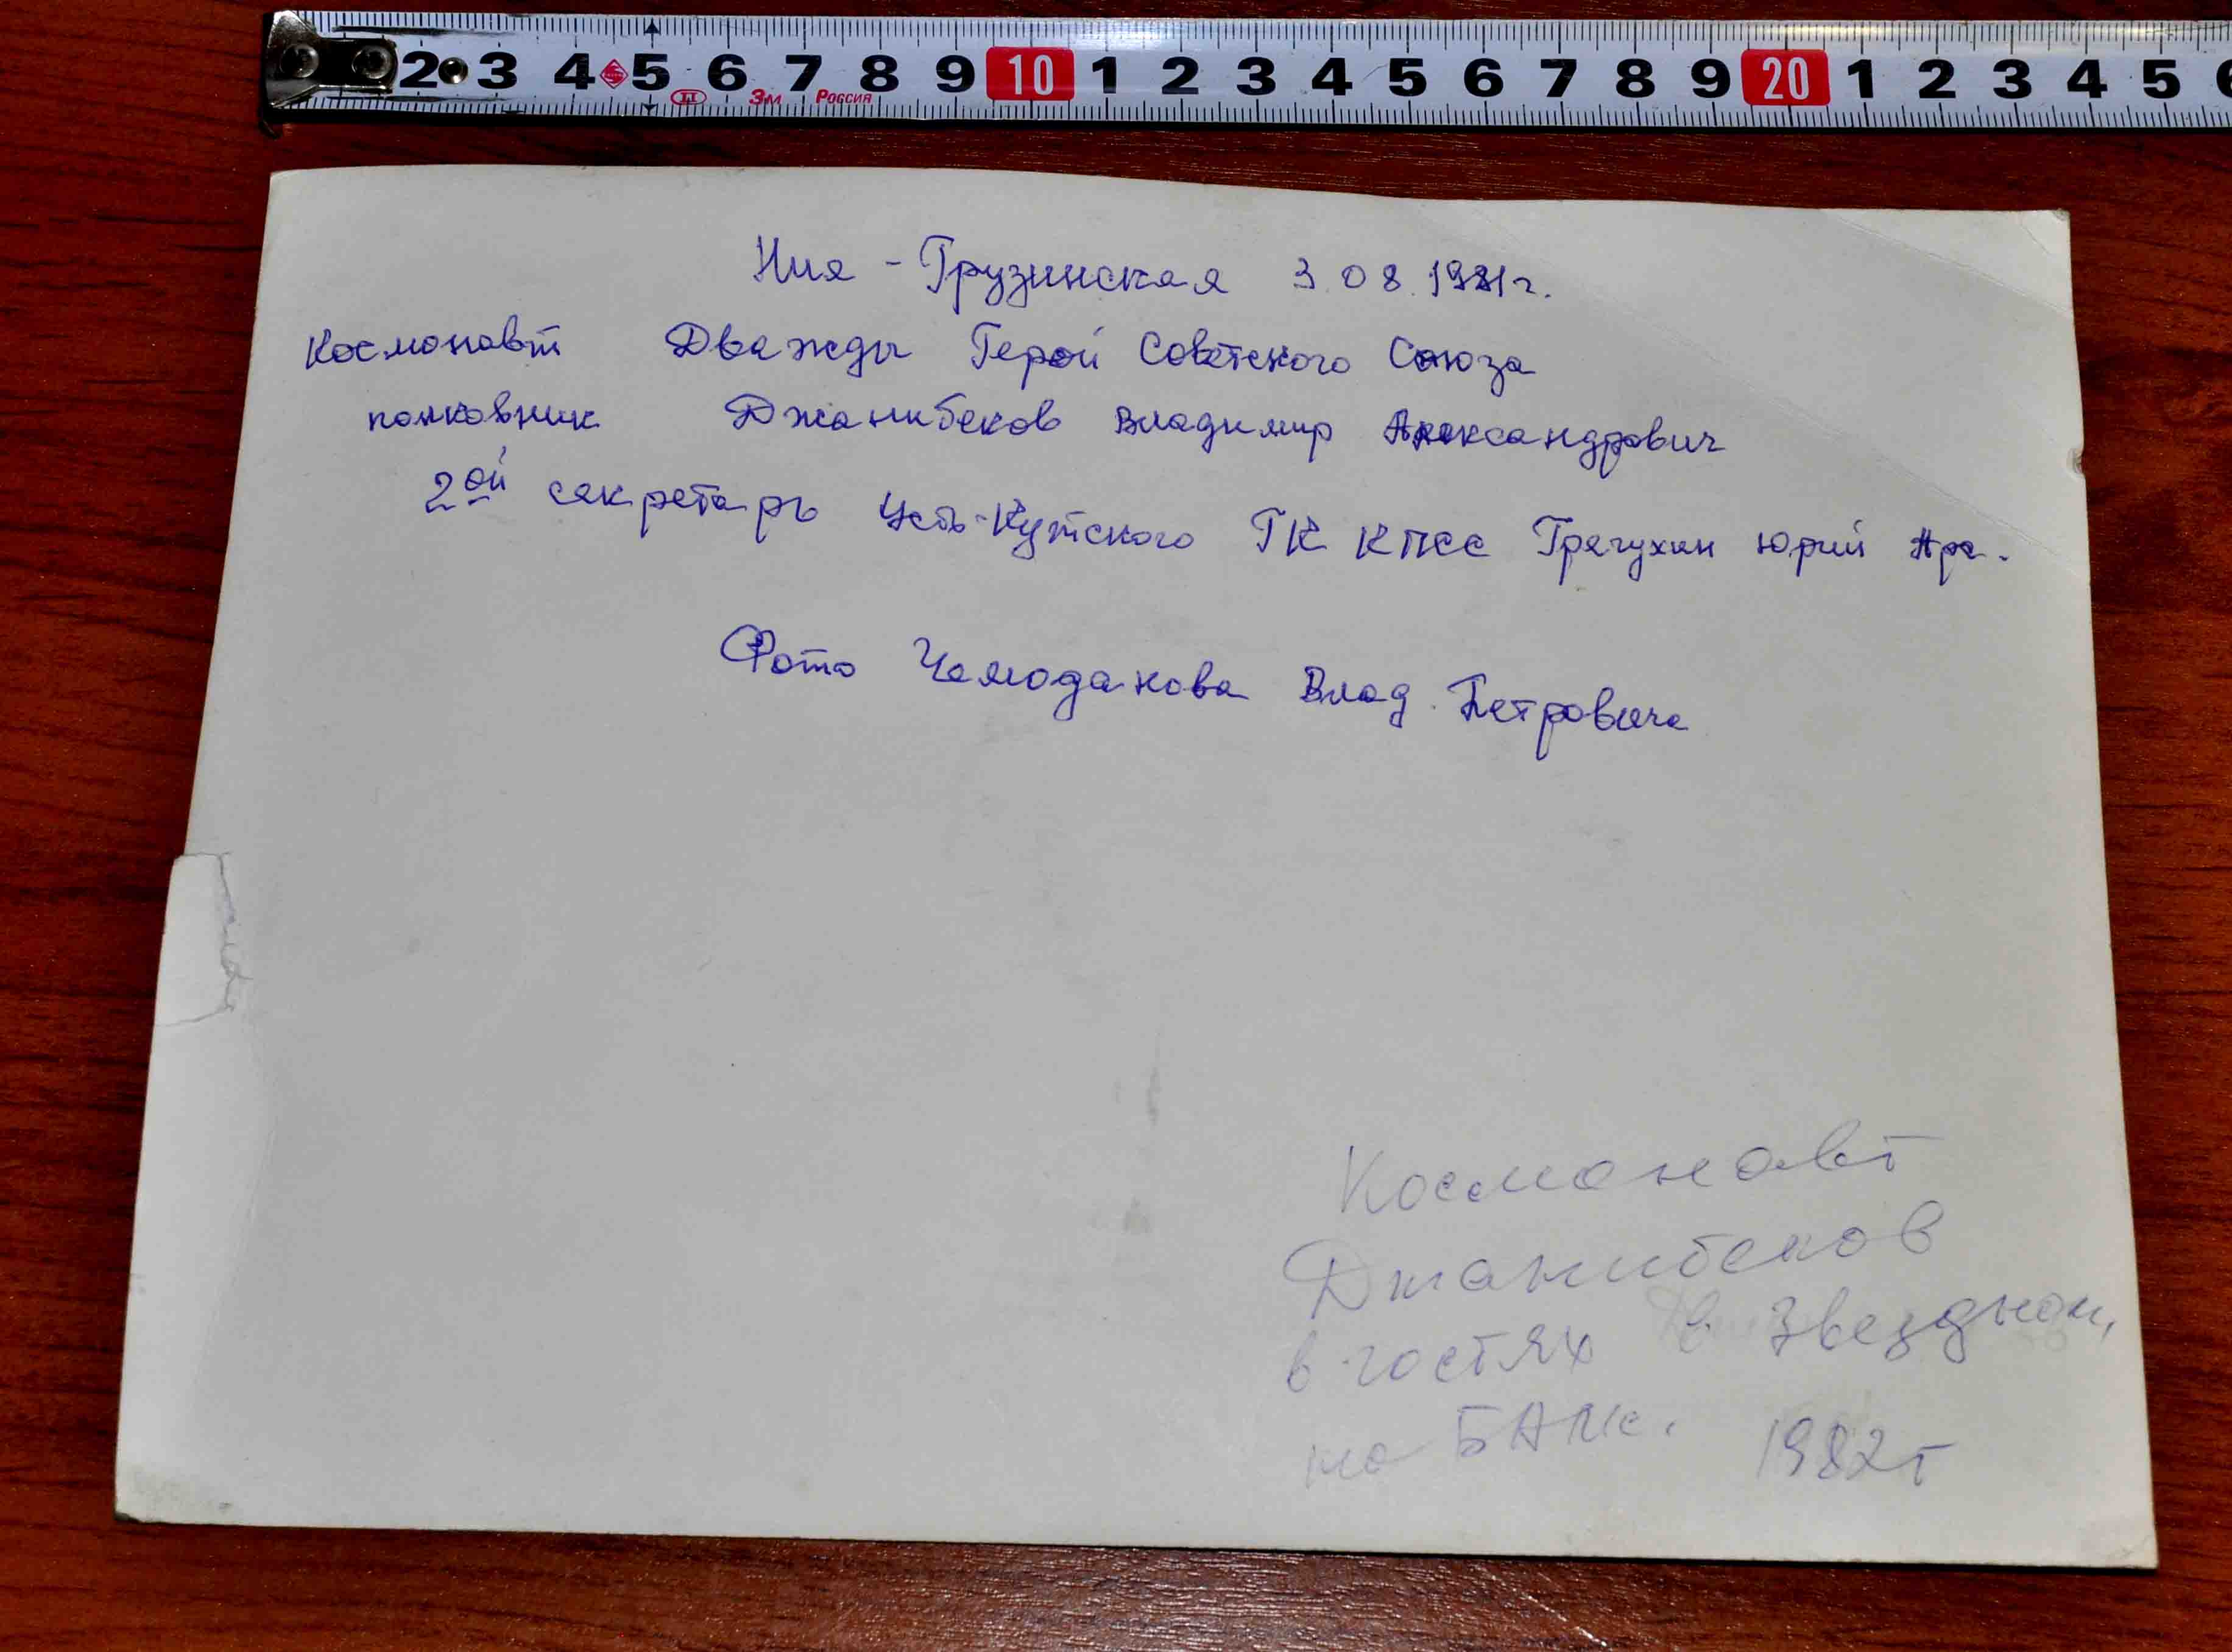 2 3 4 5 6 7 8 9 10 1 2 3 4 5 6 7 8 9 20 1 2 3 4 5
II 3м Россия
Ния - Грузинская 3.08.1981г.
Космонавт Дважды Герой Советского Союза
полковник Джанибеков Владимир Александрович
2ой секретарь Усть-Кутского ГК КПСС Юрий
Фото Чемоданова Влад. Петровича
Космонавт
Джанибеков
в гостях в Звездном,
на БАМе. 1982г